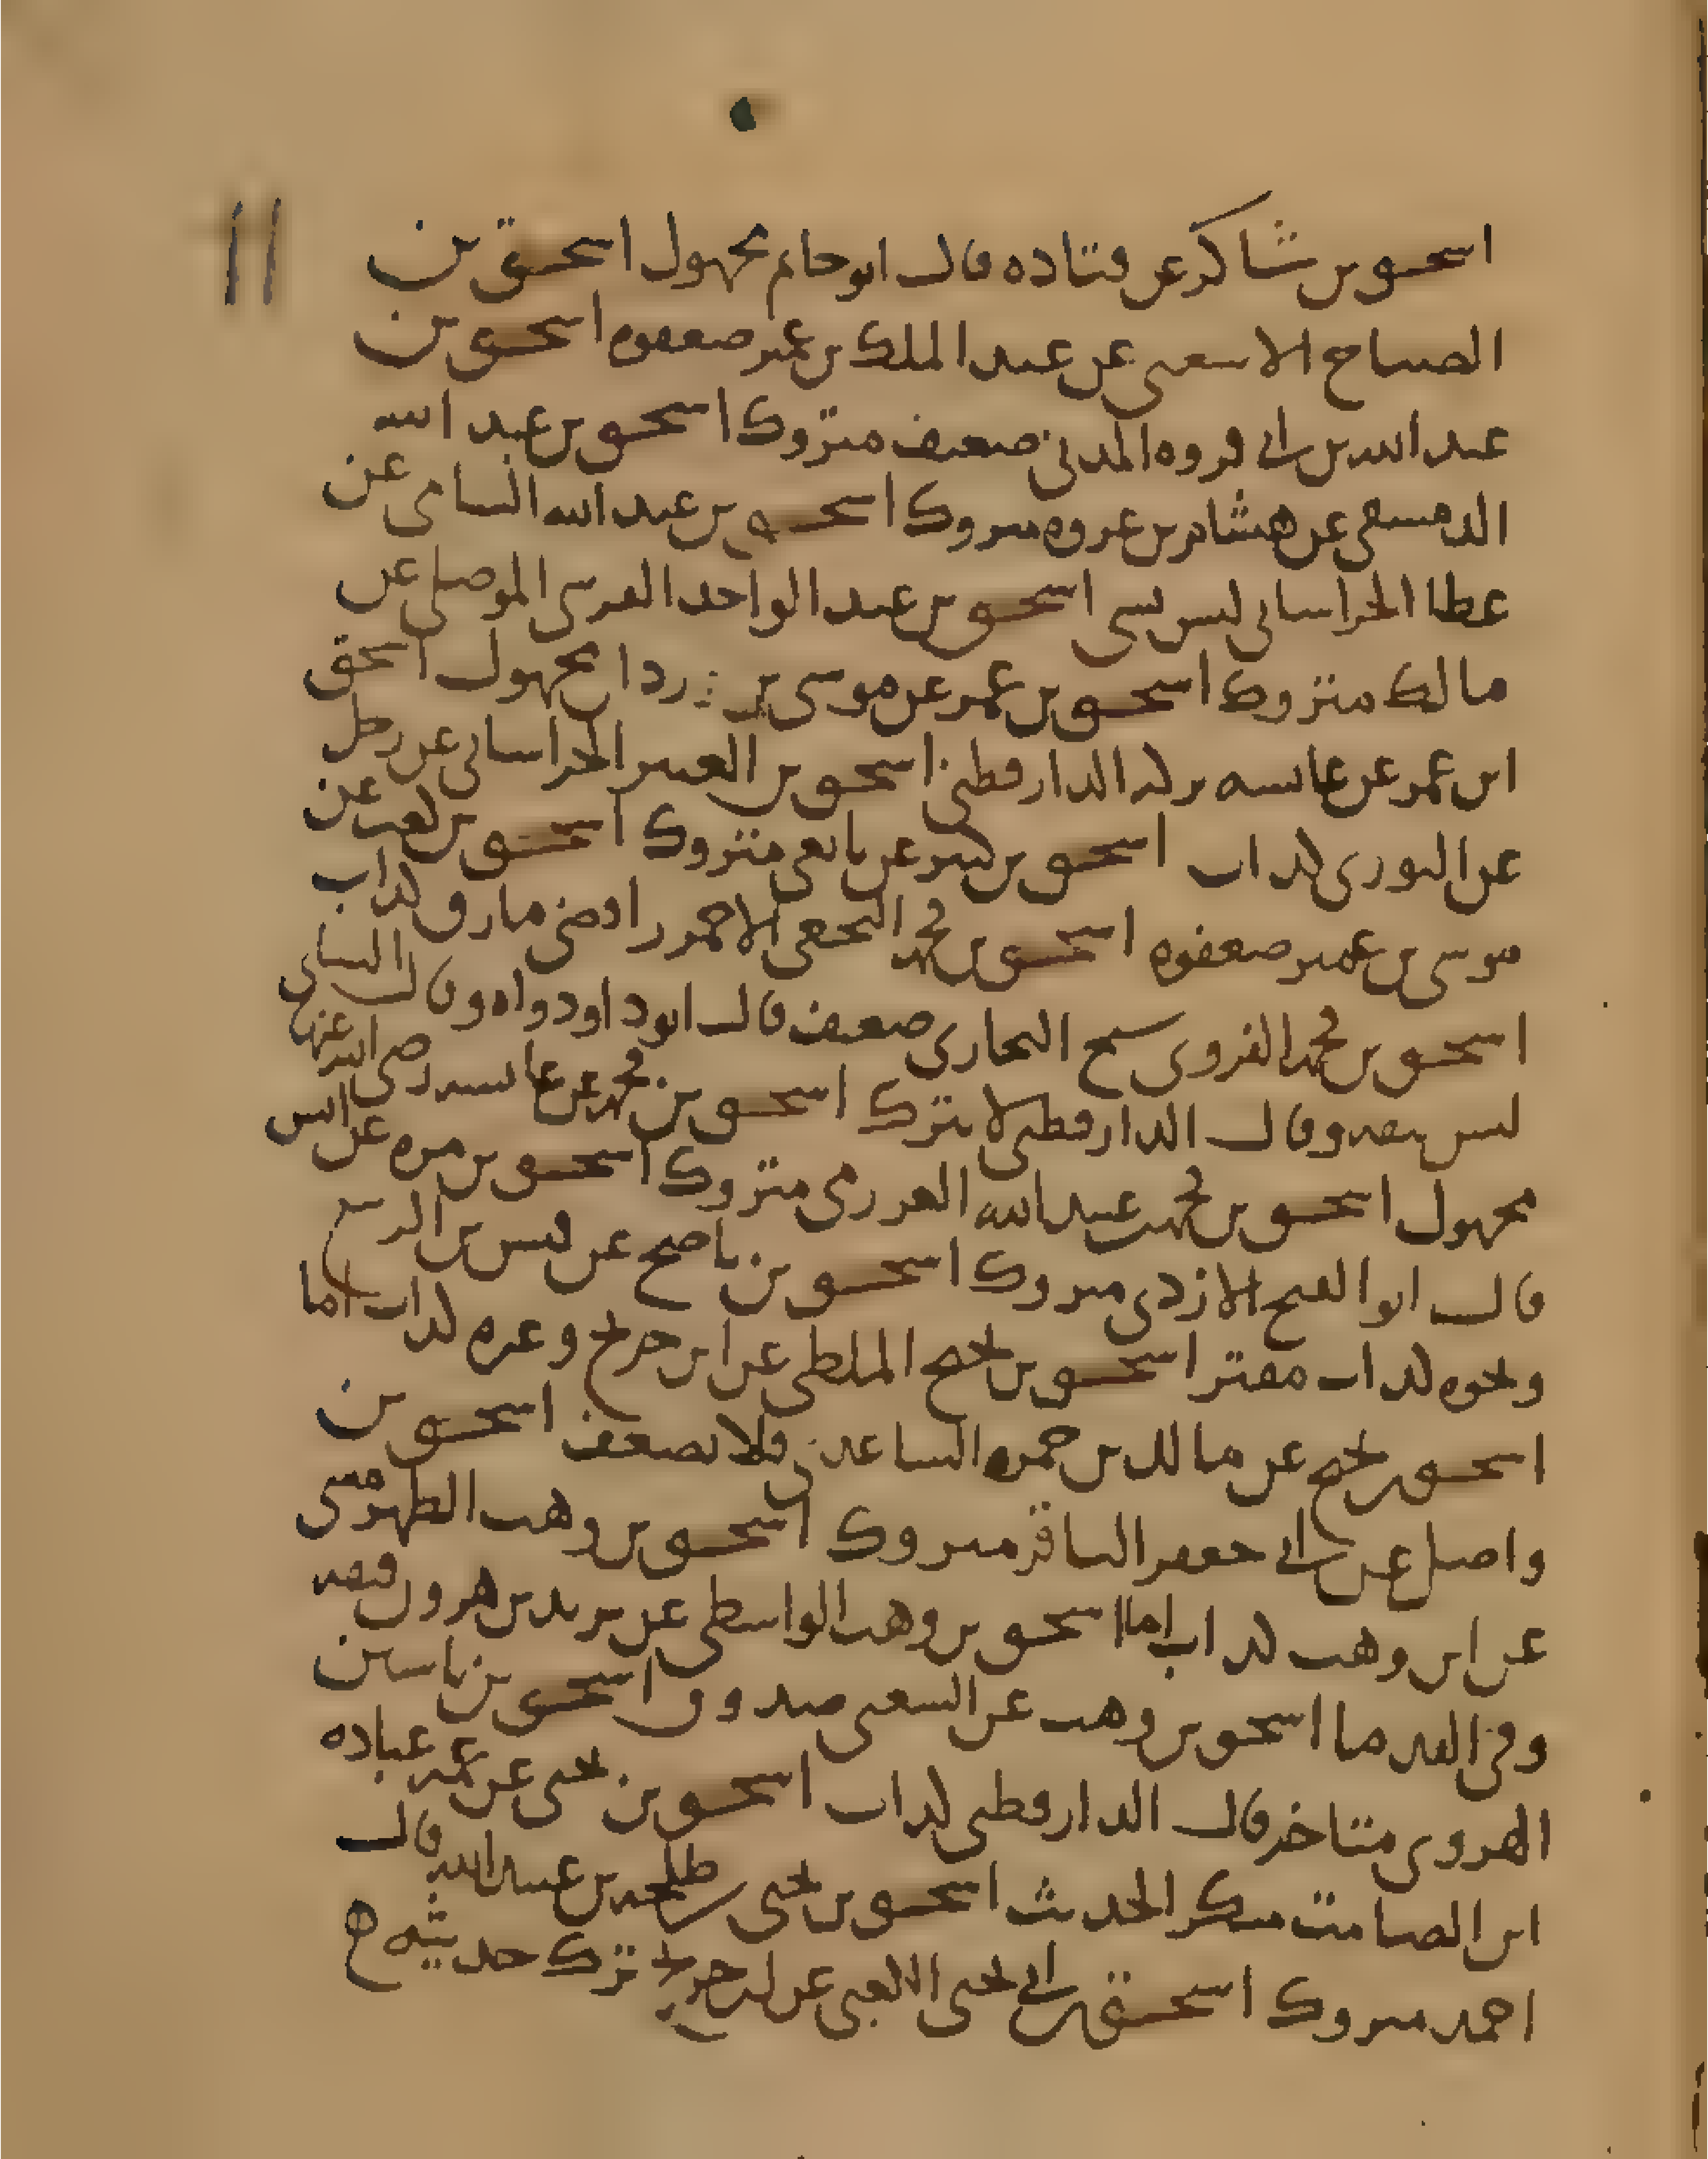 ١١
اسحق بن شاكر عن قتاده قال ابو حاتم مجهول اسحق بن
الصباح الاشعثى عن عبد الملك بن عمير ضعفوه اسحق بن
عبد الله بن ابى فروه المدنى ضعيف متروك اسحق بن عبد الله
الدمشقى عن هشام بن عروه متروك اسحق بن عبد الله الشامى عن
عطا الخراسانى ليس بشى اسحق بن عبد الواحد القرشى الموصلى عن
مالك متروك اسحق بن عمر عن موسى بن وردان مجهول اسحق
ابن عمر عن عايشه تركه الدارقطنى اسحق بن العنبر الخراسانى عن رجل
عن الثورى كذاب اسحق بن كثير عن نافع متروك اسحق بن كعب عن
موسى بن عمير ضعفوه اسحق بن محمد النخعى الاحمر رافضى مارق كذاب
اسحق بن محمد الفروى شيخ البخارى ضعيف قال ابو داود واه وقال النساى
ليس بثقه وقال الدارقطنى لا يترك اسحق بن محمد عن عايشه رضى الله عنها
مجهول اسحق بن محمد بن عبيد الله العرزمى متروك اسحق بن مره عن انس
قال ابو الفتح الازدى متروك اسحق بن ناصح عن قيس بن الربيع
ونحوه كذاب مفتر اسحق بن نجيح الملطى عن ابن جريج وغيره كذاب اما
اسحق بن نجيح عن مالك بن حمزه الساعدى فلا يضعف اسحق بن
واصل عن ابى جعفر الباقر متروك اسحق بن وهب الطهرمسى
عن ابن وهب كذاب اما اسحق بن وهب الواسطى عن يزيد بن هرون فثقه
وفى القدما اسحق بن وهب عن الشعبى صدوق اسحق بن ياسين
الهروى متاخر قال الدارقطنى كذاب اسحق بن يحيى عن عمه عباده
ابن الصامت منكر الحديث اسحق بن يحيى بن طلحه بن عبيد الله قال
احمد متروك اسحق بن ابى يحيى الكعبى عن ابن جريج ترك حديثه